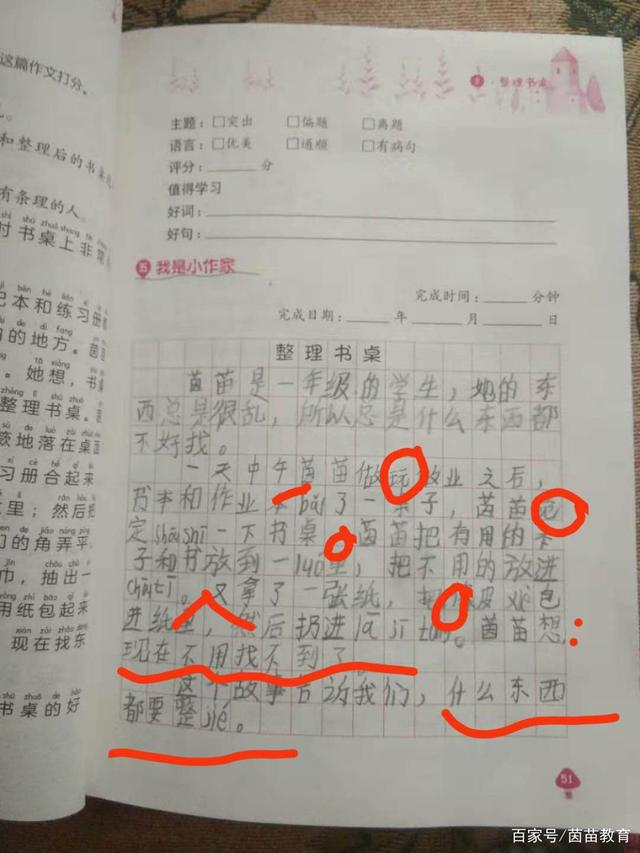 这篇作文打分。
和整理后的书桌
有条理的人。
shí shū zhuō shang
时书桌上非常
记本和练习册
的地方。茵
。她想，书桌
整理书桌。
欢地落在桌面
习册合起来
里；然后把
们的角弄平
巾，抽出一
用纸包起来
现在找东
书桌的好
整理书桌
主题：□突出 □偏题 □离题
语言：□优美 □通顺 □有病句
评分：______分
值得学习
好词：
好句：
五 我是小作家
完成时间：______分钟
完成日期：______年______月______日
整理书桌
茵苗是一年级的学生，她的东
西总是很乱，所以总是什么东西都
不好找。
一天中午茵苗做玩作业之后，
书本和作业本bǎi了一桌子，茵苗
定shōushí一下书桌。茵苗把有用的本
子和书放到一，把不用的放进
chōutì。又拿了一张纸，把皮xiè包
进纸里，然后扔进lā jī tǒng。茵苗想：
现在不用找不到了
这个故事告诉我们，什么东西
都要整jié。
51
百家号/茵苗教育